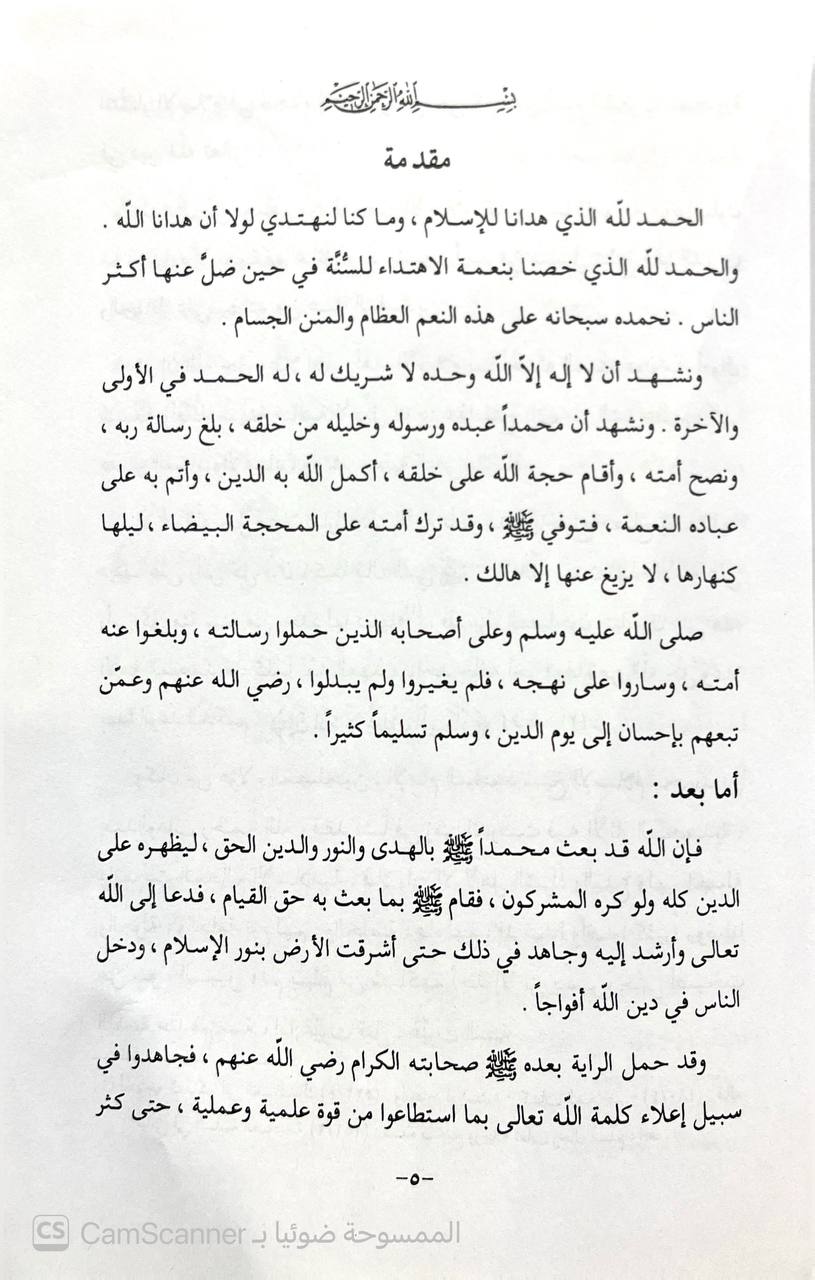 بسم الله الرحمن الرحيم
مقدمة
الحمد لله الذي هدانا للإسلام ، وما كنا لنهتدي لولا أن هدانا الله .
والحمد لله الذي خصنا بنعمة الاهتداء للسُّنَّة في حين ضلَّ عنها أكثر
الناس . نحمده سبحانه على هذه النعم العظام والمنن الجسام .
ونشهد أن لا إله إلاّ الله وحده لا شريك له ، له الحمد في الأولى
والآخرة . ونشهد أن محمداً عبده ورسوله وخليله من خلقه ، بلغ رسالة ربه ،
ونصح أمته ، وأقام حجة الله على خلقه ، أكمل الله به الدين ، وأتم به على
عباده النعمة ، فتوفي ﷺ ، وقد ترك أمته على المحجة البيضاء ، ليلها
كنهارها ، لا يزيغ عنها إلا هالك .
صلى الله عليه وسلم وعلى أصحابه الذين حملوا رسالته ، وبلغوا عنه
أمته ، وساروا على نهجه ، فلم يغيروا ولم يبدلوا ، رضي الله عنهم وعمّن
تبعهم بإحسان إلى يوم الدين ، وسلم تسليماً كثيراً .
أما بعد :
فإن الله قد بعث محمداً ﷺ بالهدى والنور والدين الحق ، ليظهره على
الدين كله ولو كره المشركون ، فقام ﷺ بما بعث به حق القيام ، فدعا إلى الله
تعالى وأرشد إليه وجاهد في ذلك حتى أشرقت الأرض بنور الإسلام ، ودخل
الناس في دين الله أفواجاً .
وقد حمل الراية بعده ﷺ صحابته الكرام رضي الله عنهم ، فجاهدوا في
سبيل إعلاء كلمة الله تعالى بما استطاعوا من قوة علمية وعملية ، حتى كثر
-٥-
CS الممسوحة ضوئيا بـ CamScanner